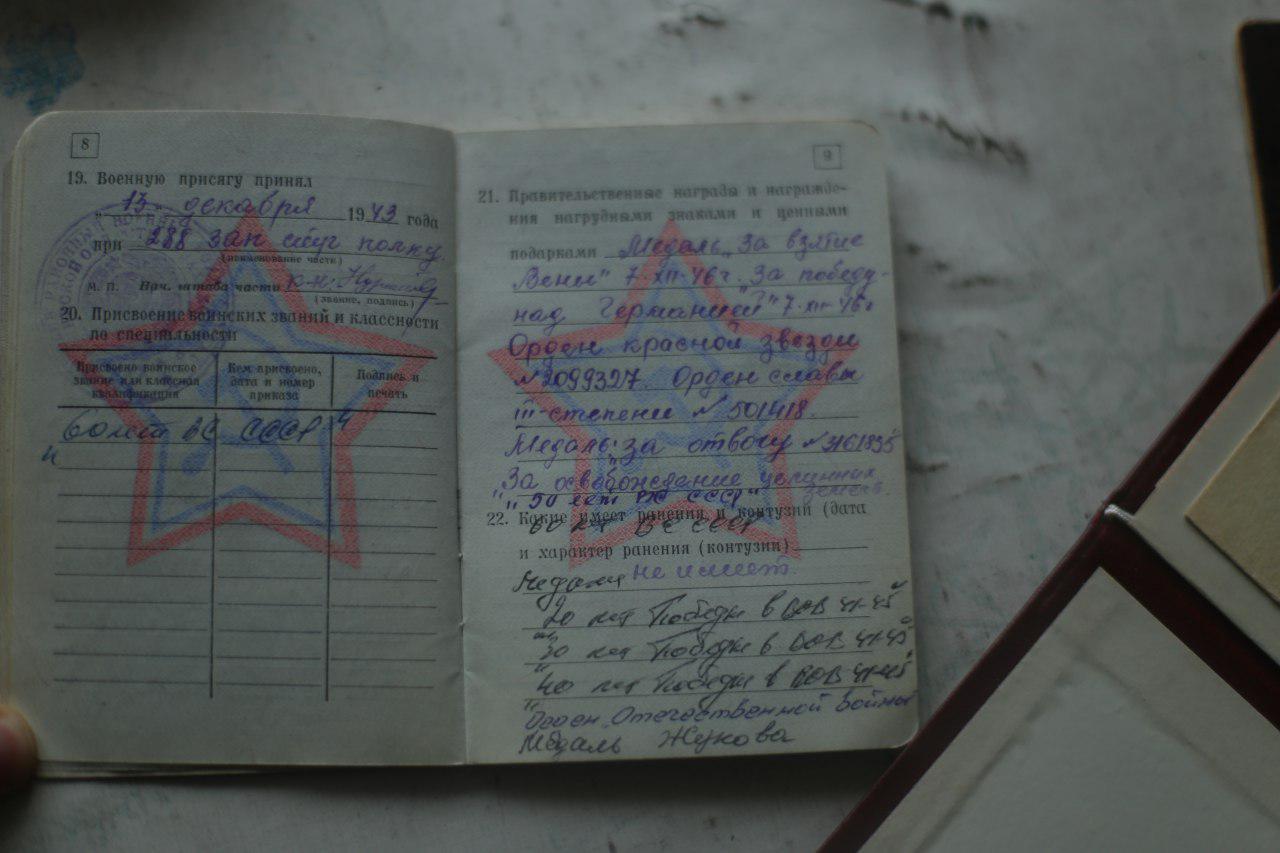 8
19. Военную присягу принял
" 13 " декабря 1943 года
при 288 зап стр полку
(наименование части)
М. П. Нач. штаба части к-н
(звание, подпись)
20. Присвоение воинских званий и классности
по специальности
Присвоено воинское звание или классная квалификация
Кем присвоено, дата и номер приказа
Подпись и печать
60 лет ВС СССР
9
21. Правительственные награды и награжде-
ния нагрудными знаками и ценными
подарками Медаль „За взятие
Вены" 7-XII-46г. „За победу-
над Германией" 7-XII-46г
Орден красной звезды
№2099327. Орден славы
III-степени №501418.
Медаль: „За отвагу №3161835
"За освобождение целинных
земель.
" 50 лет ВС СССР"
22. Какие имеет ранения и контузии (дата
60 лет ВС СССР
и характер ранения (контузии)
Медали не имеет.
20 лет Победы в ВОВ 41-45"
"30 лет Победы в ВОВ 41-45"
"40 лет Победы в ВОВ 41-45"
Орден „Отечественной Войны
Медаль Жукова